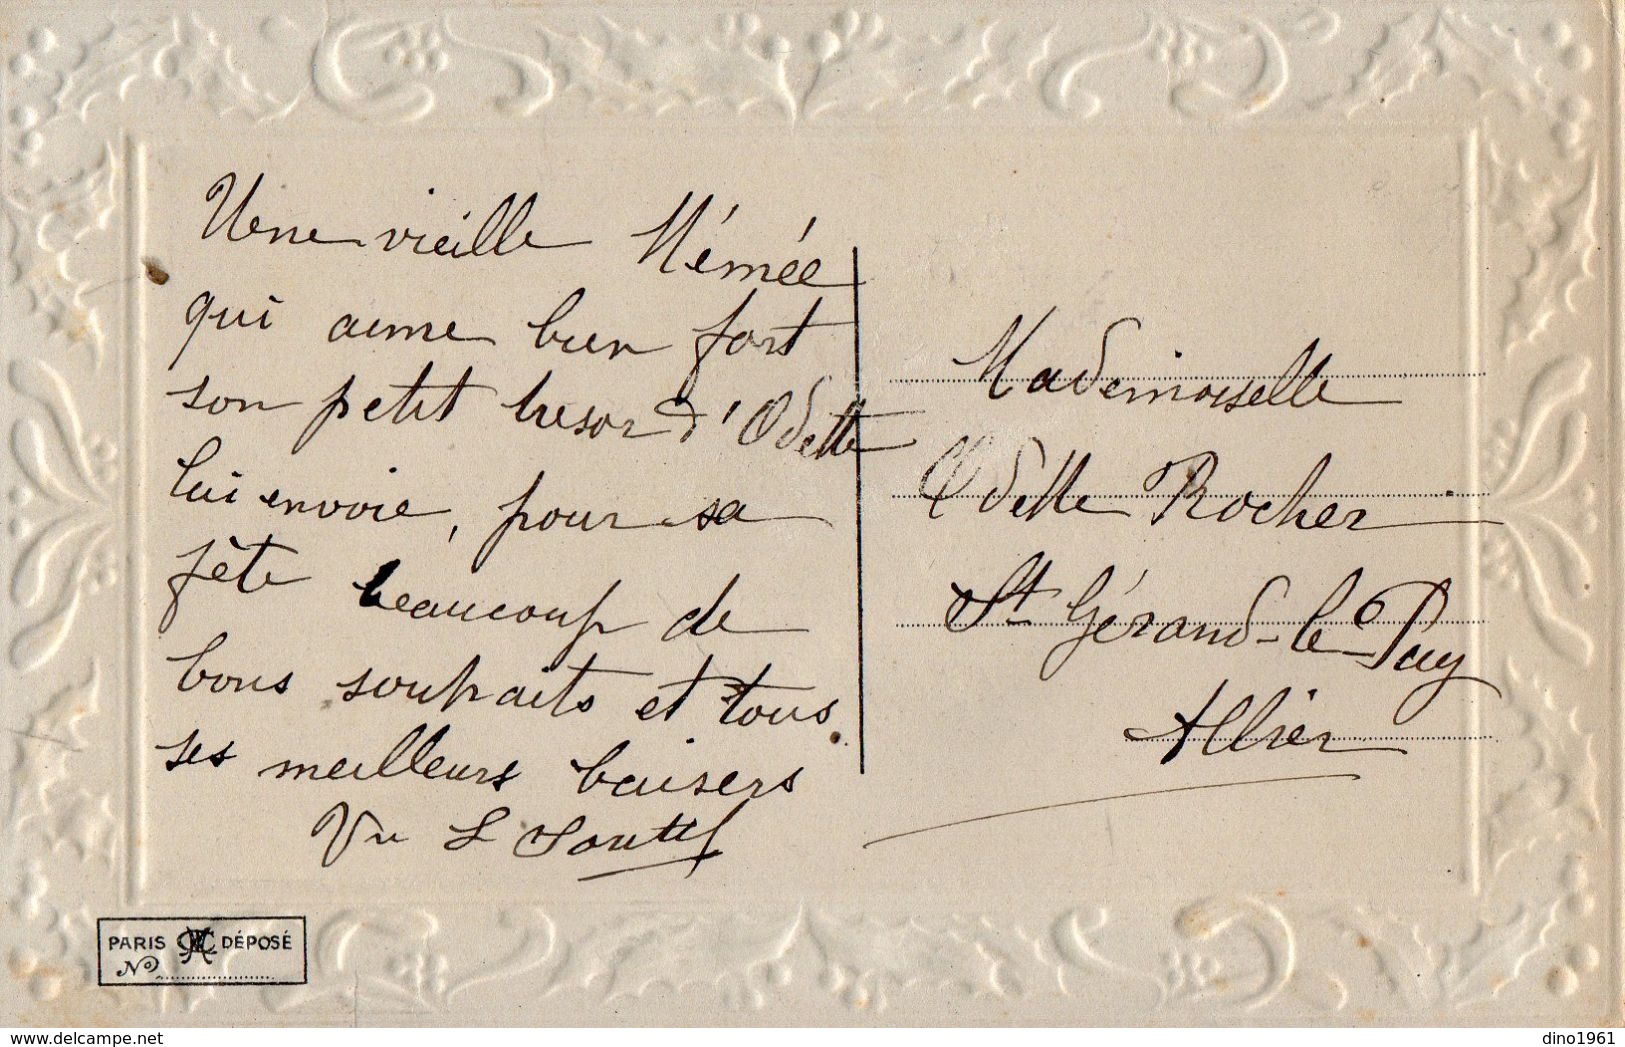 Une vieille Mémée
qui aime bien fort
son petit tresor d'Odette
lui envoie, pour sa
fête beaucoup de
bons souhaits et tous
ses meilleurs baisers
Vve L
Mademoiselle
Odette Rocher
St Gérand-le-Puy
Allier
PARIS DÉPOSÉ
No
delcampe.net
dino1961